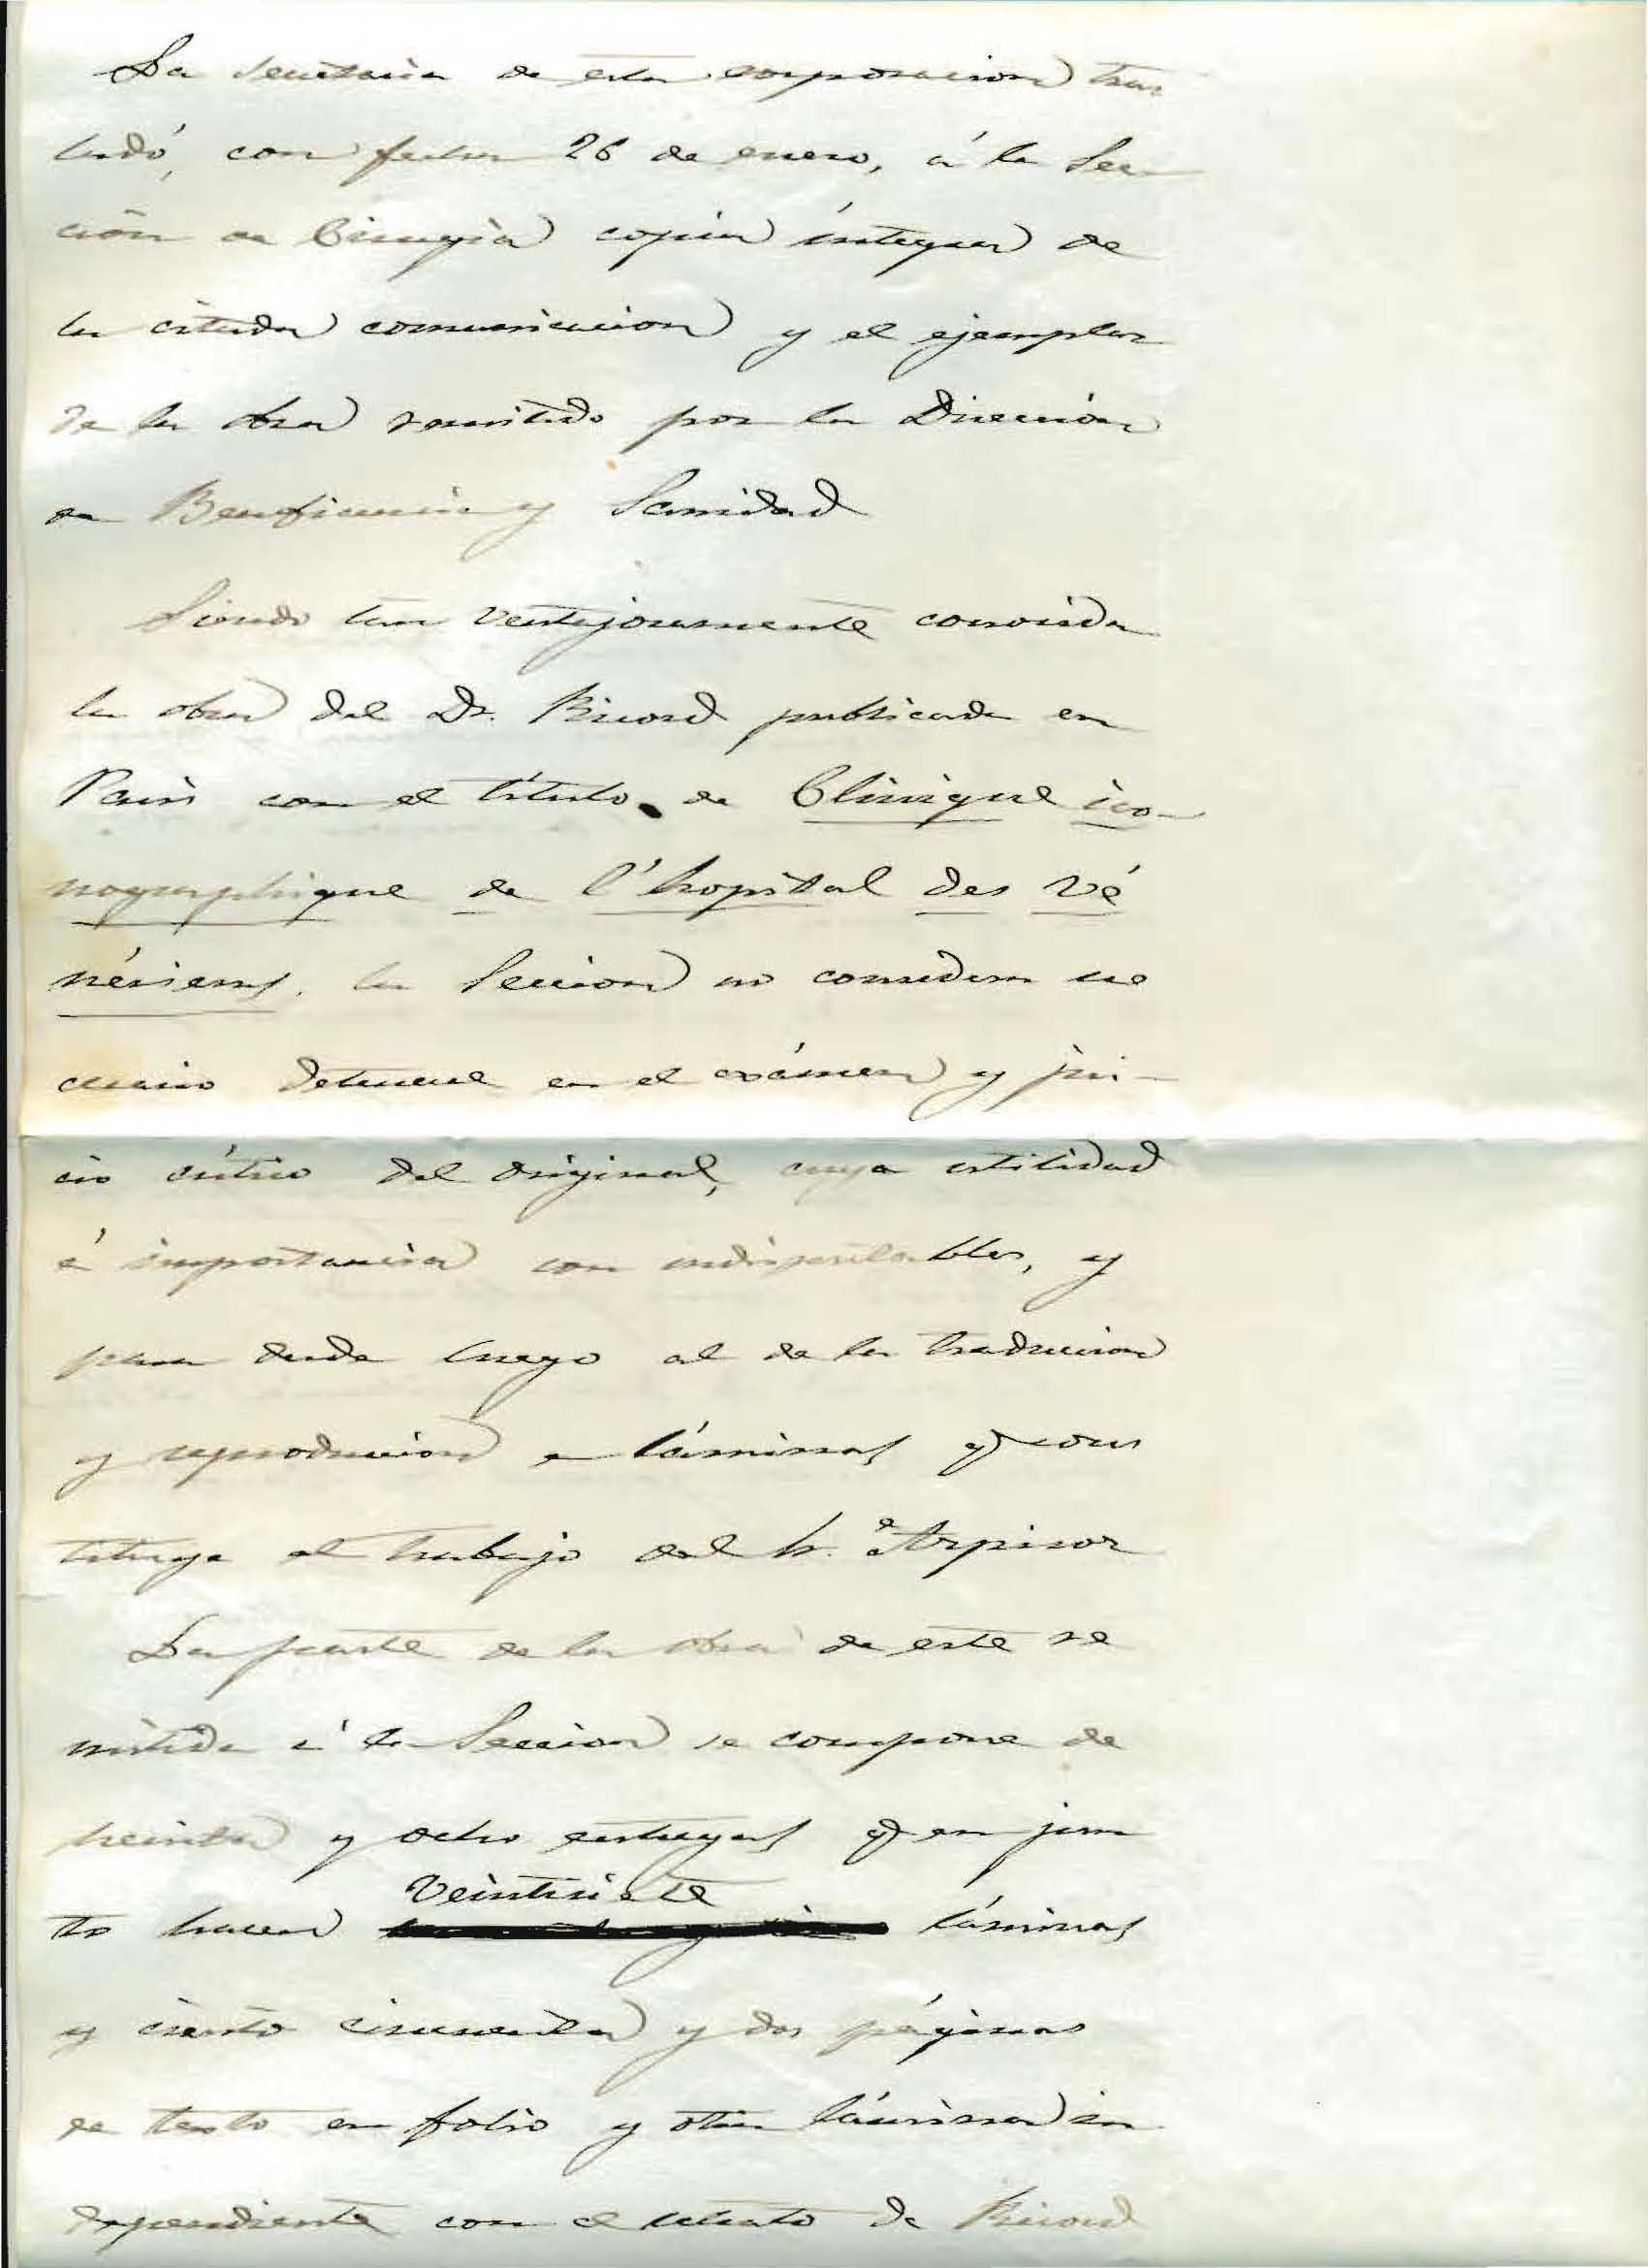 La Secretaria de esta corporacion tras
ladó, con fecha 26 de enero, á la Sec
ción de Cirugia copia íntegra de
la citada comunicacion y el ejemplar
de la obra remitido por la Dirección
de Beneficencia y Sanidad
Siendo tan ventajosamente conocida
la obra del Dr. Ricord publicada en
Paris con el título de Clinique ico-
nographique de l'hopital des Vé
nériens, la Seccion no considera ne
cesario detenerse en el exámen y jui-
cio crítico del original, cuya utilidad
é importancia son indisputables, y
pasa desde luego al de la traduccion
y reproduccion de láminas q cons
tituye el trabajo del Sr.
La parte de la obra de este re
mitida á la Seccion se compone de
treinta y ocho entregas q en jun
to hacen veintisiete láminas
y ciento cincuenta y dos páginas
de texto en folio y otra lámina in
dependiente con el retrato de Ricord